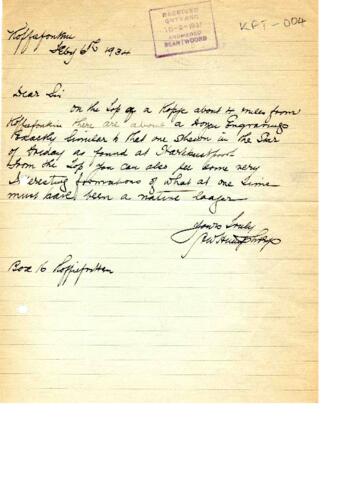 KFT-004
RECEIVED
ONTVANG
ANSWERED
BEANTWOORD
Koffiefontein
Feby 6th 1934
Dear Sir
On the top of a Koppe about 4 miles from
Koffiefontein there are about a dozen Engravings
Exactly Similar to that one Shewn in the Star
of Friday as found at
From the Top you can also see some very
interesting formations of what at one time
must have been a native laager
Yours truly
Box 16 Koffiefontein